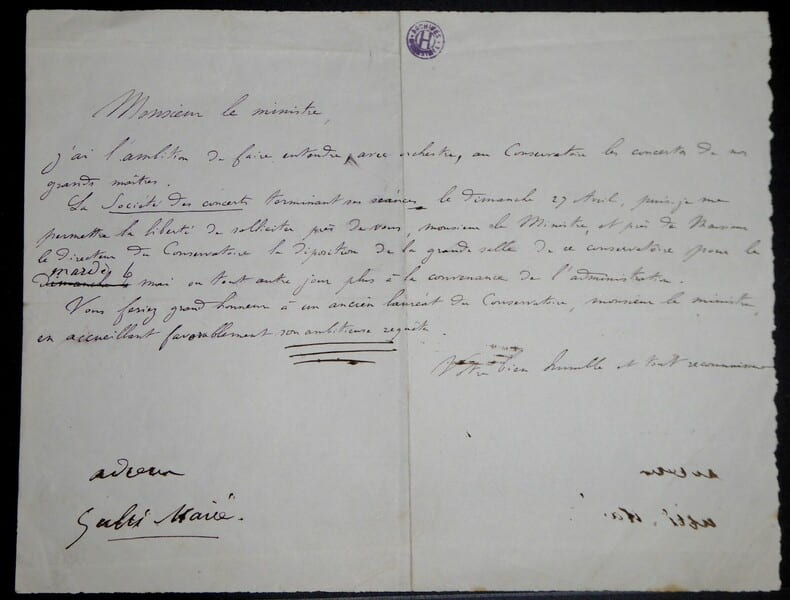 ARCHIVES
H
Monsieur le ministre,
j'ai l'ambition de faire entendre, avec orchestre, au Conservatoire les concertos de nos
grands maîtres.
La Société des concerts terminant ses séances, le dimanche 27 Avril, puis-je me
permettre la liberté de solliciter près de vous, monsieur le Ministre, et près de Monsieur
le directeur du Conservatoire la diposition de la grande salle de ce conservatoire pour le
mardi 6
dimanche 4 mai ou tout autre jour plus à la convenance de l'administration.
Vous feriez grand honneur à un ancien lauréat du Conservatoire, monsieur le ministre,
en accueillant favorablement son ambitieuse requête.
Votre bien humble et tout reconnaissant